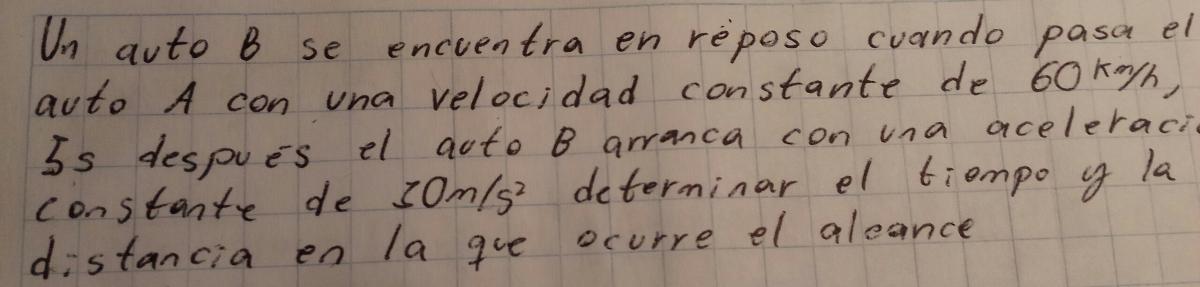 Un auto B se encuentra en réposo cuando pasa el
auto A con una velocidad constante de 60 km/h,
5s después el auto B arranca con una aceleraci
constante de 50m/s² determinar el tiempo y la
distancia en la que ocurre el alcance